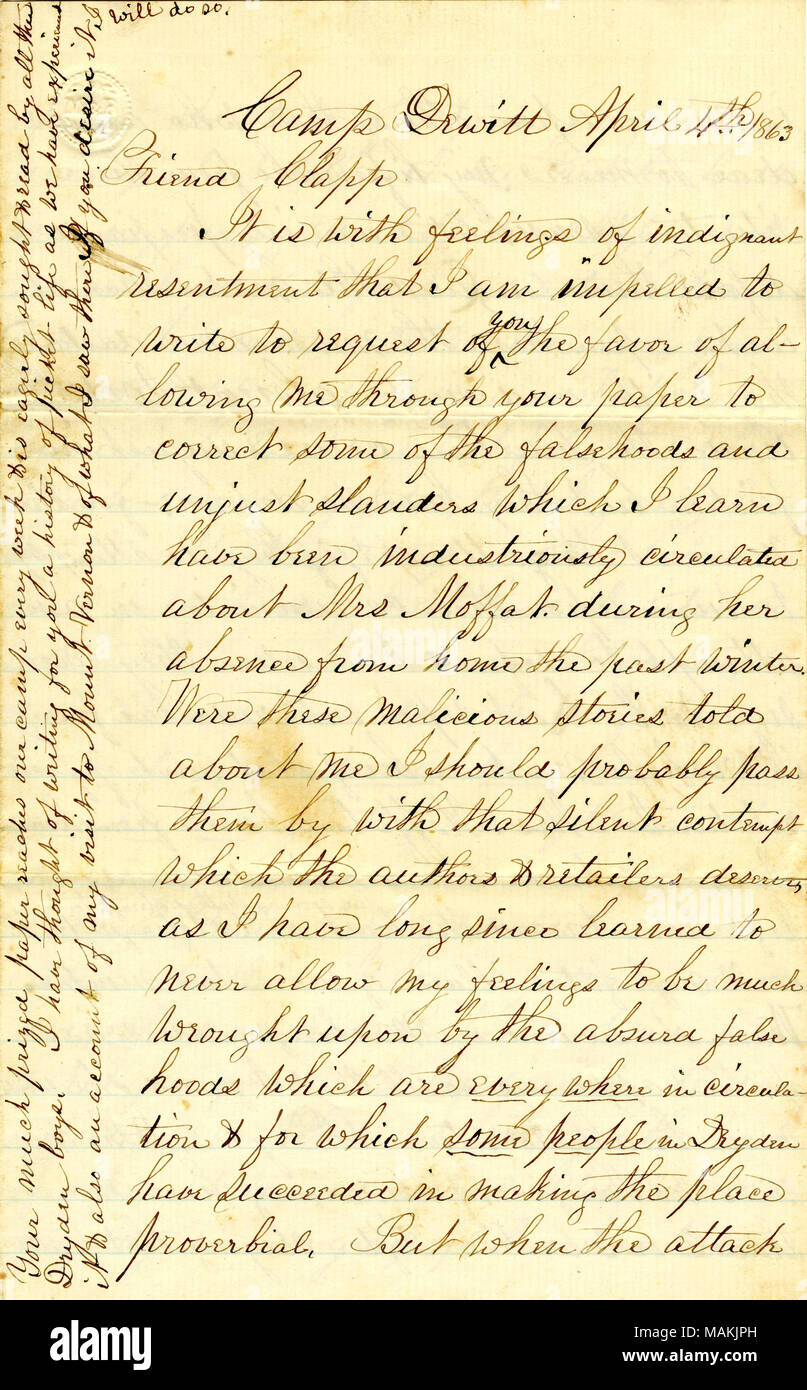 Camp Dewitt April 4th 1863
Friend Clapp
It is with feelings of indignant
resentment that I am impelled to
write to request of you the favor of al-
lowing me through your paper to
correct some of the falsehoods and
unjust slanders which I learn
have been industriously circulated
about Mrs Moffat. during her
absence from home the past winter.
Were these malicious stories told
about me I should probably pass
them by with that silent contempt
which the authors & retailers deserves
as I have long since learned to
never allow my feelings to be much
wrought upon by the absurd false
hoods which are every where in circula-
tion & for which some people in Dryden
have succeeded in making the place
proverbial. But when the attack
Your much prized paper reaches our camp every week & is eagerly sought & read by all the
Dryden boys. I have thought of writing for you a history of picket life as we have experienced
it & also an account of my visit to Mount Vernon & of what I saw there If you desire it, I
will do so.
alamy
Image ID: MAKJPH
www.alamy.com